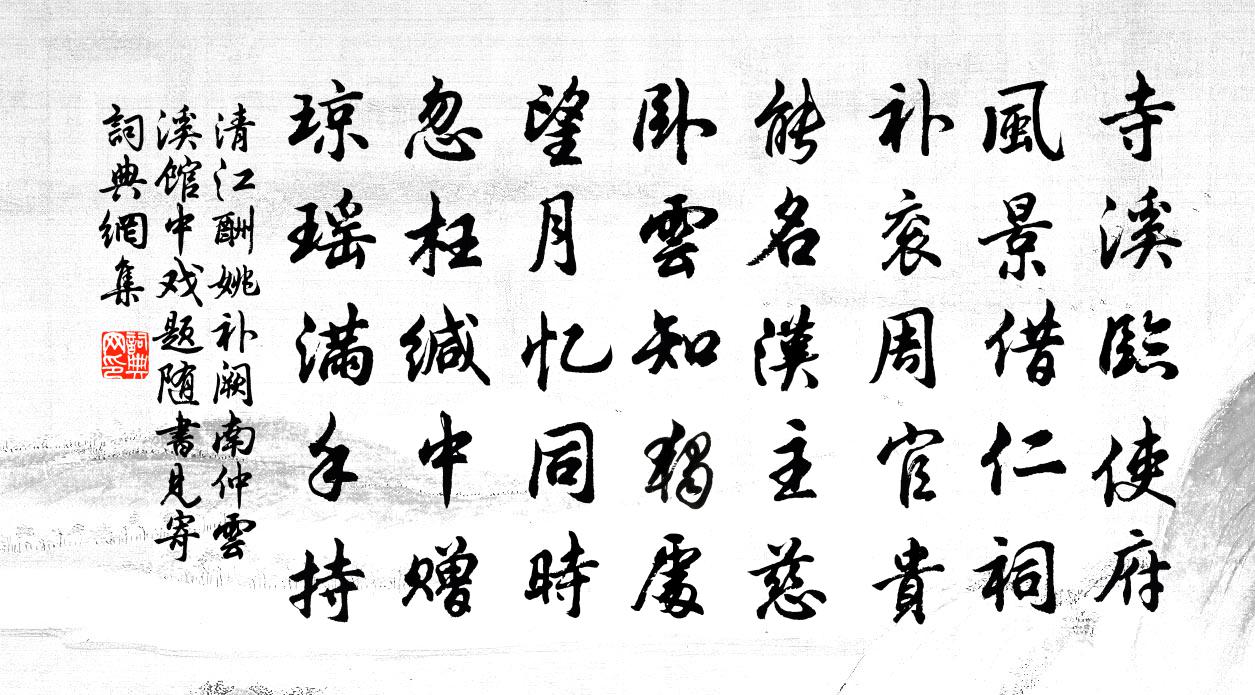 寺溪臨使府
風景借仁祠
补衮周官貴
能名漢主慈
卧雲知獨處
望月忆同時
忽枉缄中赠
琼瑶满手持
清江酬姚补阙南仲雲
溪馆中戏题随書見寄
詞典網集
詞典
网印